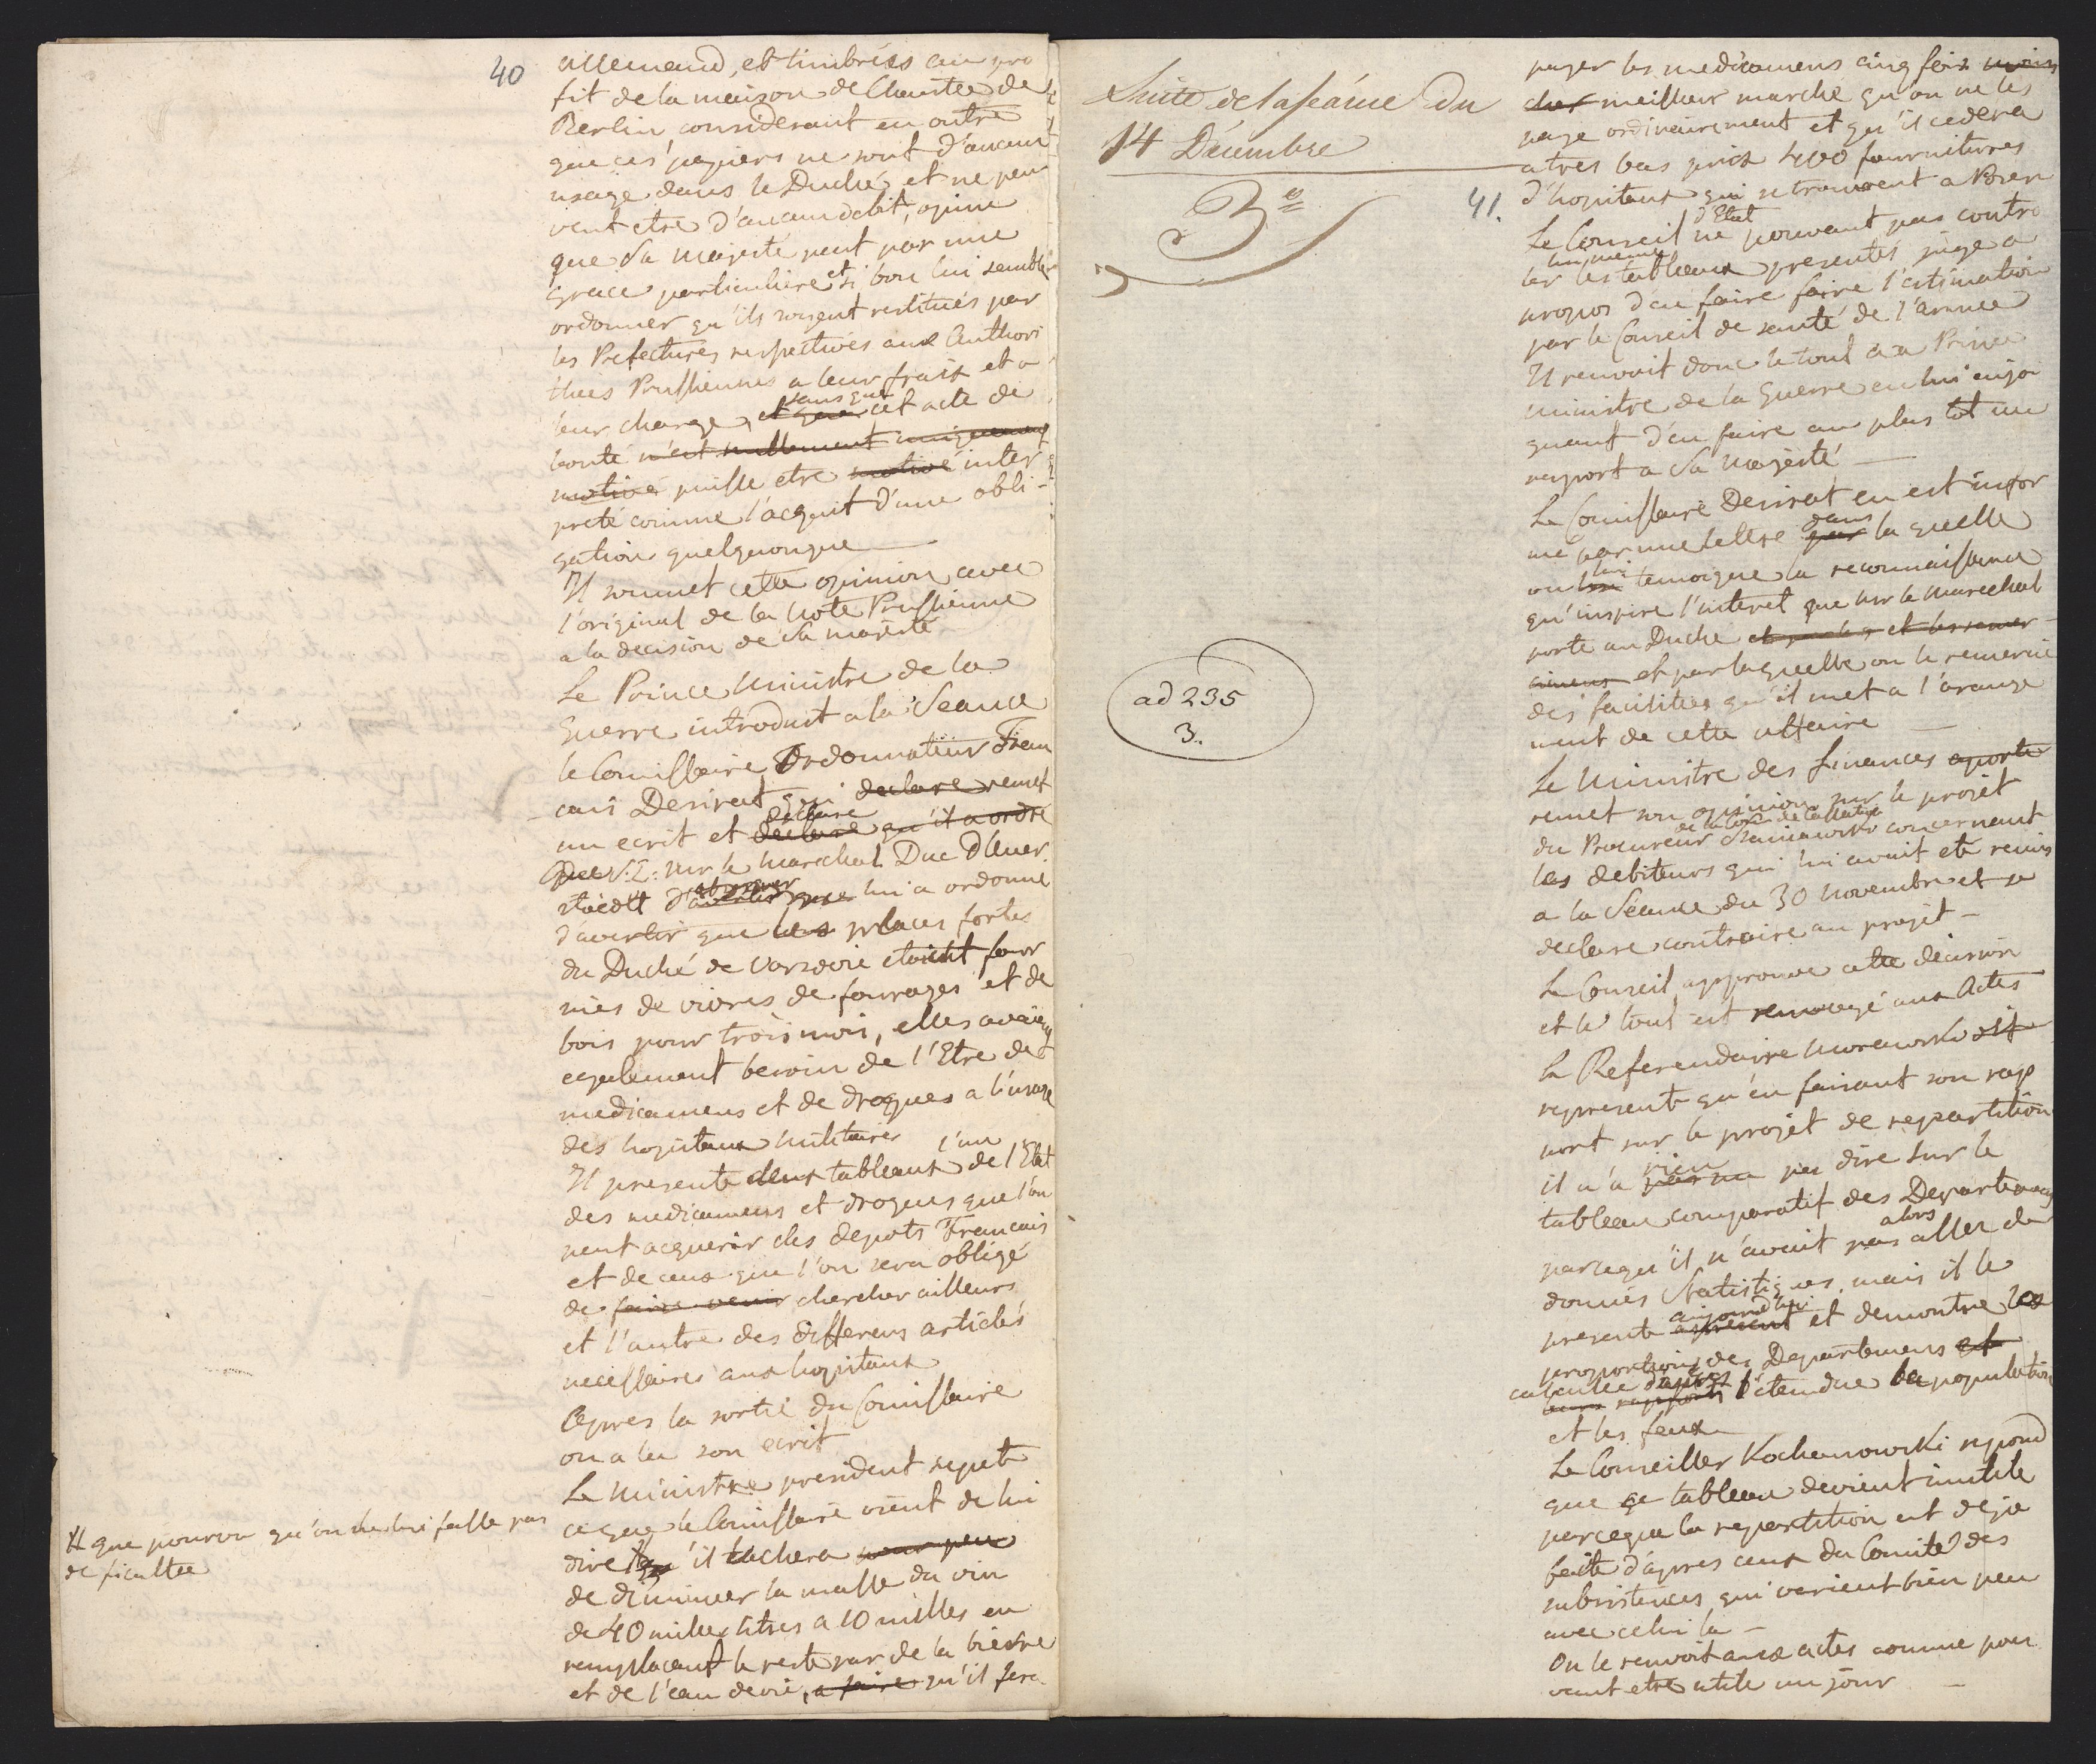 40
allemand, et timbrées au pro
fit de la maison de Charitee de
Berlin considerant en outre
que ces papiers ne sont d'aucun
usage dans le Duché, et ne peu
vent etre d'aucun debit, opine
que Sa Majesté peut par une
grace particuliere et si bon lui semble
ordonner qu'ils soyent restitués par
les Prefectures respectives aux Authori
thees Prussiennes a leur fraix et a
leur charge, et que sans que cet acte de
bonté n'est nullement uniquement
motivé puisse etre motivé inter
preté comme l'acquit d'une obli-
gation quelquonque
Il soumet cette opinion avec
l'original de la Note Prussienne
a la decision de Sa majesté
Le Prince Ministre de la
Guerre introduit a la Seance
le Comissaire Ordonnateur Fran
cais Desirat qui declare remet
un ecrit et declare declare qu'il a ordre
Que S: E: Mr le Marechal Duc d'Auer
staedt d'avertir que lui a ordonné
d'avertir que les places fortes
du Duché de Varsovie etoient four
nies de vivres de fourages et de
bois pour trois mois, elles avaient
egalement besoin de l'Etre de
medicamens et de drogues a l'usage
des hopitaux militaires
Il presente deux tableaux l'un de l'Etat
des medicamens et drogues que l'on
peut acquerir des depots Francais
et de ceux que l'on sera obligé
de faire venir chercher ailleurs
et l'autre des differens articles
necessaires aux hopitaux
Apres la sortie du Comissaire
on a lu son ecrit
Le Ministre president repete
ce que le Comissaire vient de lui
dire # qu'il tachera pour peu
de diminuer la masse du vin
de 40 mille litres a 10 milles en
remplacant le reste par de la bierre
et de l'eau de vie, a faire qu'il fera
# que pourvu qu'on ne lui fasse pas
de ficultee
Suite de la seance du
14 Décembre
3e
ad 235
3.
41.
payer les medicamens cinq fois moins
cher meilleur marché qu'on ne les
paye ordinairement et qu'il cedera
a tres bas prix 4000 fournitures
d'hopitaux qui se trouvent a Posen
Le Conseil d'Etat ne pouvant pas contro
ler lui meme les tableaux presentés juge a
propos d'en faire faire l'estimation
par le Conseil de santé de l'armee
Il renvoit donc le tout au Prince
Ministre de la Guerre en lui enjoi
gnant d'en faire au plus tot un
raport a Sa Majesté
Le Comissaire Desirat en est infor
mé par une lettre par dans la quelle
on lui temoigne la reconnaissance
qu'inspire l'interet que Mr le Marechal
porte au Duché et les remer
ciemens et par laquelle on le remercie
des facilitées qu'il met a l'arange
ment de cette affaire
Le Ministre des Finances aporte
remet son opinion sur le projet
du Procureur de la Cour de Cassation concernant
les debiteurs qui lui avait eté remis
a la Séance du 30 Novembre et se
declare contraire au projet -
Le Conseil approuve cette decision
et le tout est renvoyé aux Actes
Le Referendaire Morawski dit
represente qu'en faisant son rap
port sur le projet de repartition
il n'a rien pu dire sur le
tableau comparatif des Departemens
parcequ'il n'avait pas alors assez de
donnés Statistiques, mais il le
presente apresent aujourdhui et demontre les
proportions des Departemens et
calculée d'apres leurs rapports l'étendue la population
et les feux
Le Conseiller Kochanowski repond
que ce tableau devient inutile
parceque la repartition est deja
faite d'apres ceux du Comité des
subsistences qui varient bien peu
avec celui la -
On le renvoit aux actes comme pou
vant etre utile un jour